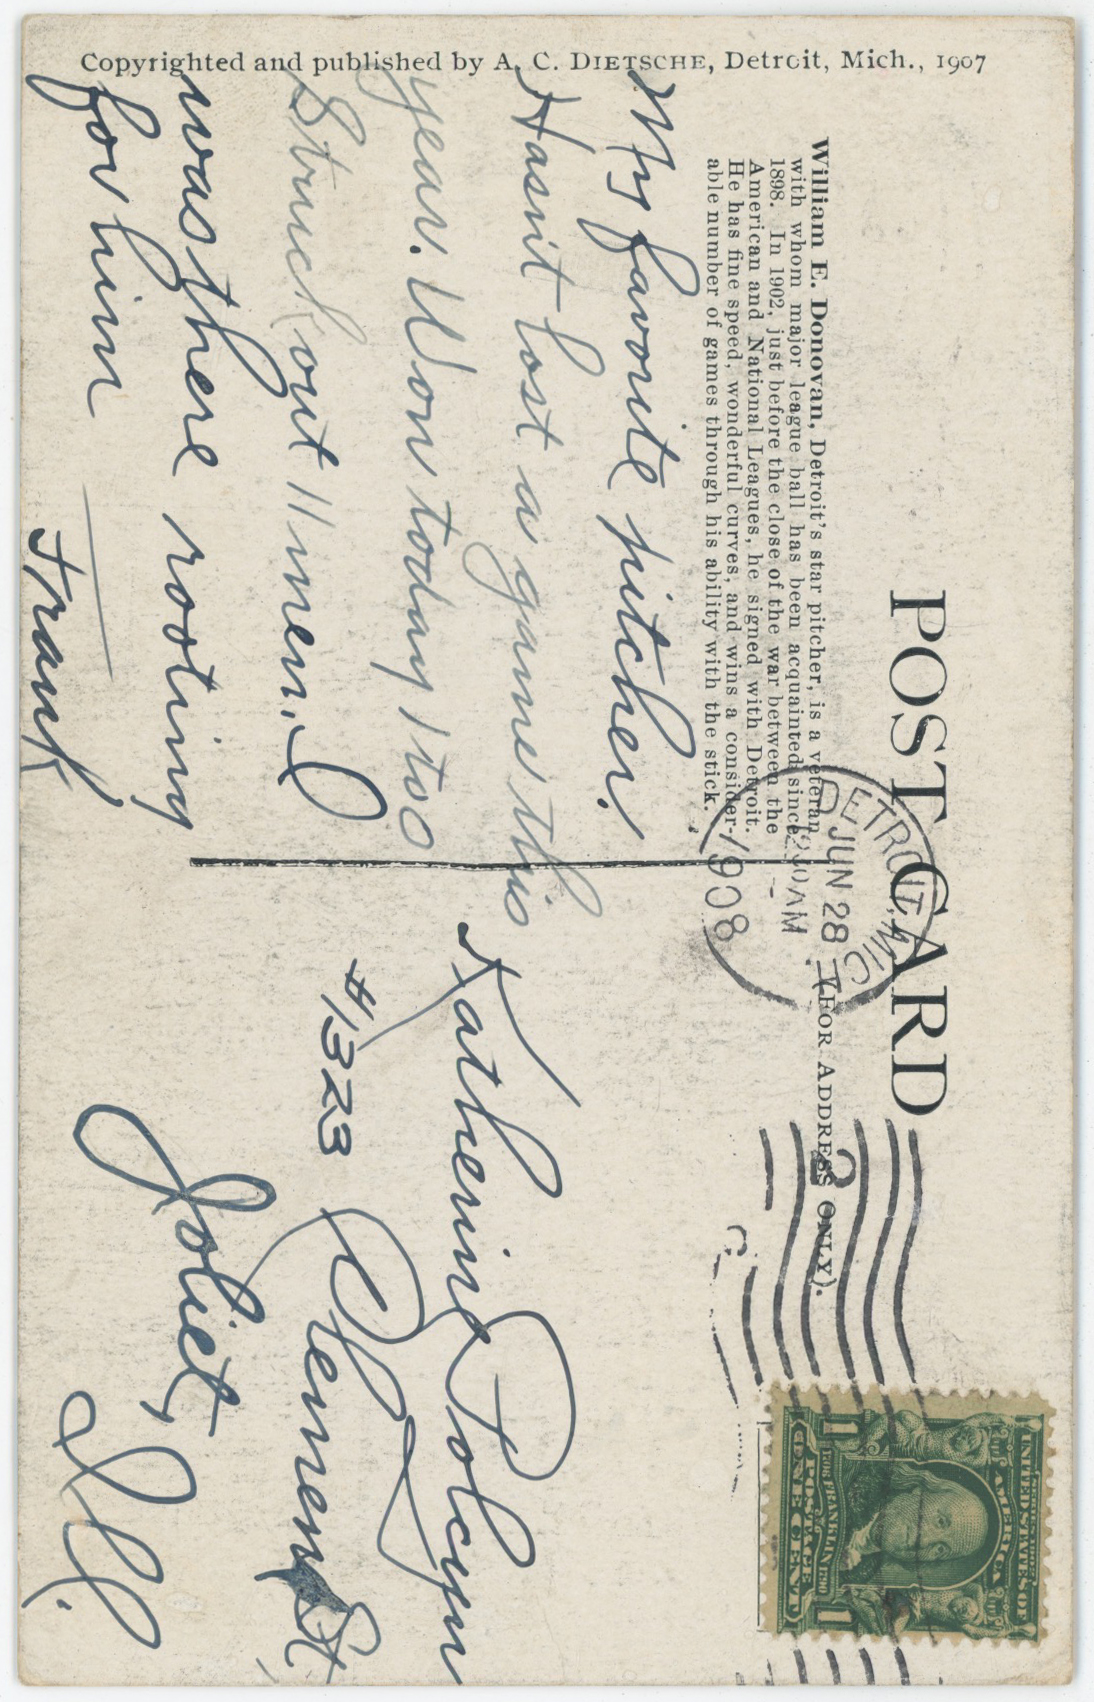 Copyrighted and published by A. C. DIETSCHE, Detroit, Mich., 1907
POST CARD
(FOR ADDRESS ONLY).
William E. Donovan, Detroit's star pitcher, is a veteran
with whom major league ball has been acquainted since
1898. In 1902, just before the close of the war between the
American and National Leagues, he signed with Detroit.
He has fine speed, wonderful curves, and wins a consider-
able number of games through his ability with the stick.
DETROIT, MICH
JUN 28
1230 AM
1908
2
SERIES 1902
UNITED STATES OF
AMERICA
1706 FRANKLIN 1790
POSTAGE
ONE CENT
1 1
My favorite pitcher.
Hasn't lost a game this
year. Won today 1 to 0
Struck out 11 men. I
was there rooting
for him
Frank
Katherine Polcyn
#1323 Clement St.
Joliet, Ill.